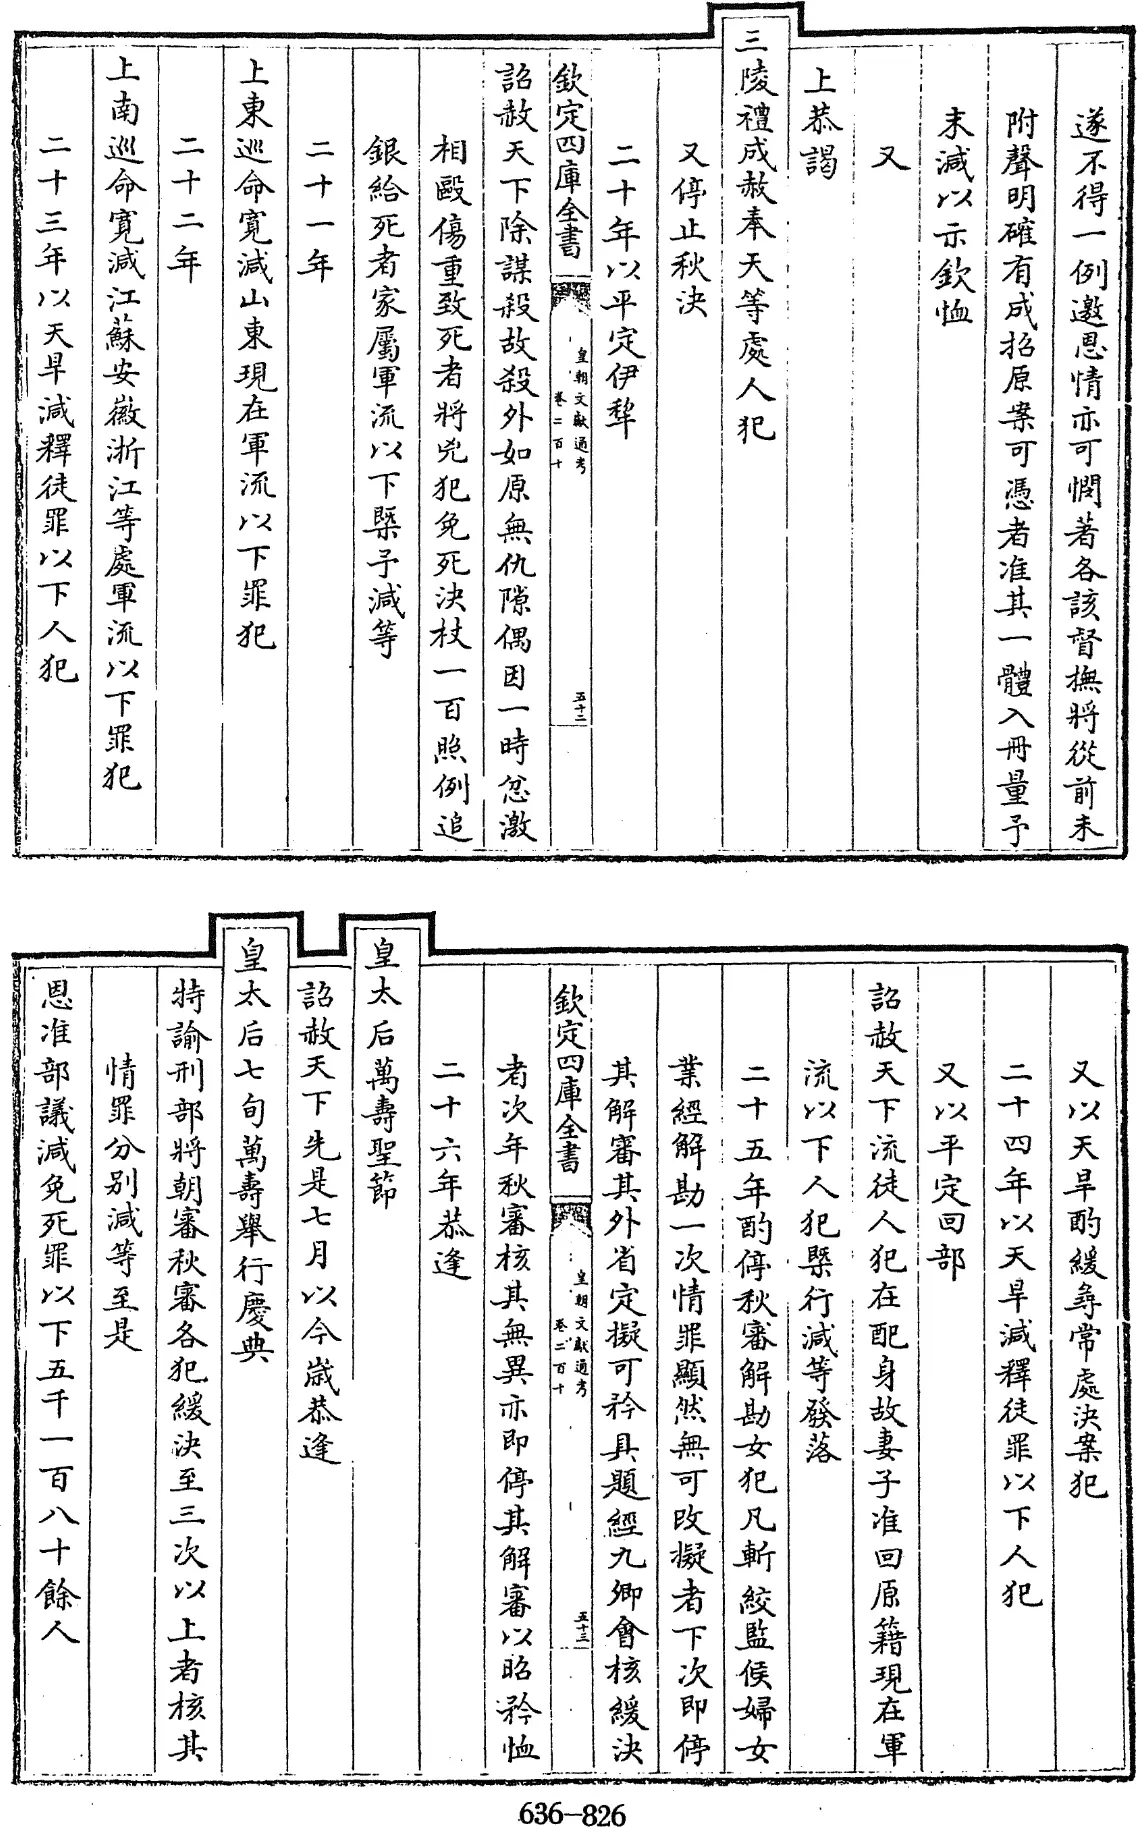 遂不得一例邀恩情亦可憫著各該督撫將從前未
附聲明確有成招原案可憑者准其一體入冊量予
末減以示欽恤
又
上恭謁
三陵禮成赦奉天等處人犯
又停止秋決
二十年以平定伊犂
欽定四庫全書
皇朝文獻通考
卷二百十
五十二
詔赦天下除謀殺故殺外如原無仇隙偶因一時忿激
相毆傷重致死者將兇犯免死決杖一百照例追
銀給死者家屬軍流以下槩予減等
二十一年
上東巡命寬減山東現在軍流以下罪犯
二十二年
上南巡命寬減江蘇安徽浙江等處軍流以下罪犯
二十三年以天旱減釋徒罪以下人犯
又以天旱酌緩尋常處決案犯
二十四年以天旱減釋徒罪以下人犯
又以平定回部
詔赦天下流徒人犯在配身故妻子准回原籍現在軍
流以下人犯槩行減等發落
二十五年酌停秋審解勘女犯凡斬絞監候婦女
業經解勘一次情罪顯然無可改擬者下次即停
其解審其外省定擬可矜具題經九卿會核緩決
欽定四庫全書
皇朝文獻通考
卷二百十
五十三
者次年秋審核其無異亦即停其解審以昭矜恤
二十六年恭逢
皇太后萬壽聖節
詔赦天下先是七月以今歲恭逢
皇太后七旬萬壽舉行慶典
特諭刑部將朝審秋審各犯緩決至三次以上者核其
情罪分別減等至是
恩准部議減免死罪以下五千一百八十餘人
636-826